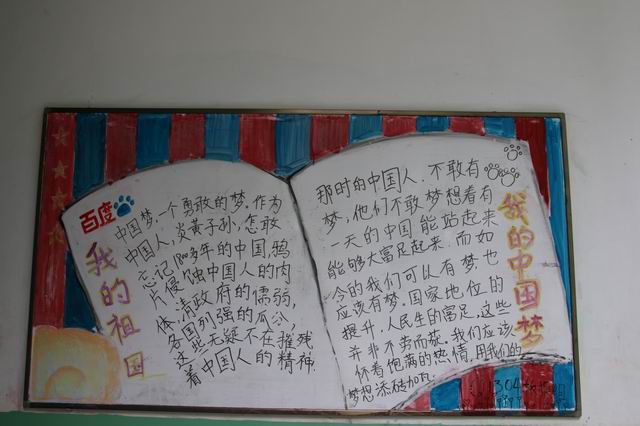 百度
我的祖国
中国梦,一个勇敢的梦.作为
中国人,炎黄子孙,怎敢
忘记1800多年的中国,鸦
片侵蚀中国人的肉
体,清政府的懦弱,
各国列强的瓜分,
这些无疑不在摧残
着中国人的精神.
那时的中国人,不敢有
梦,他们不敢梦想着有
一天的中国能站起来
能够大富足起来.而如
今的我们可以有梦,也
应该有梦.国家地位的
提升,人民生的富足,这些
并非不劳而获.我们应该
怀着饱满的热情,用我们的
梦想添砖加瓦.
我的中国梦
1304